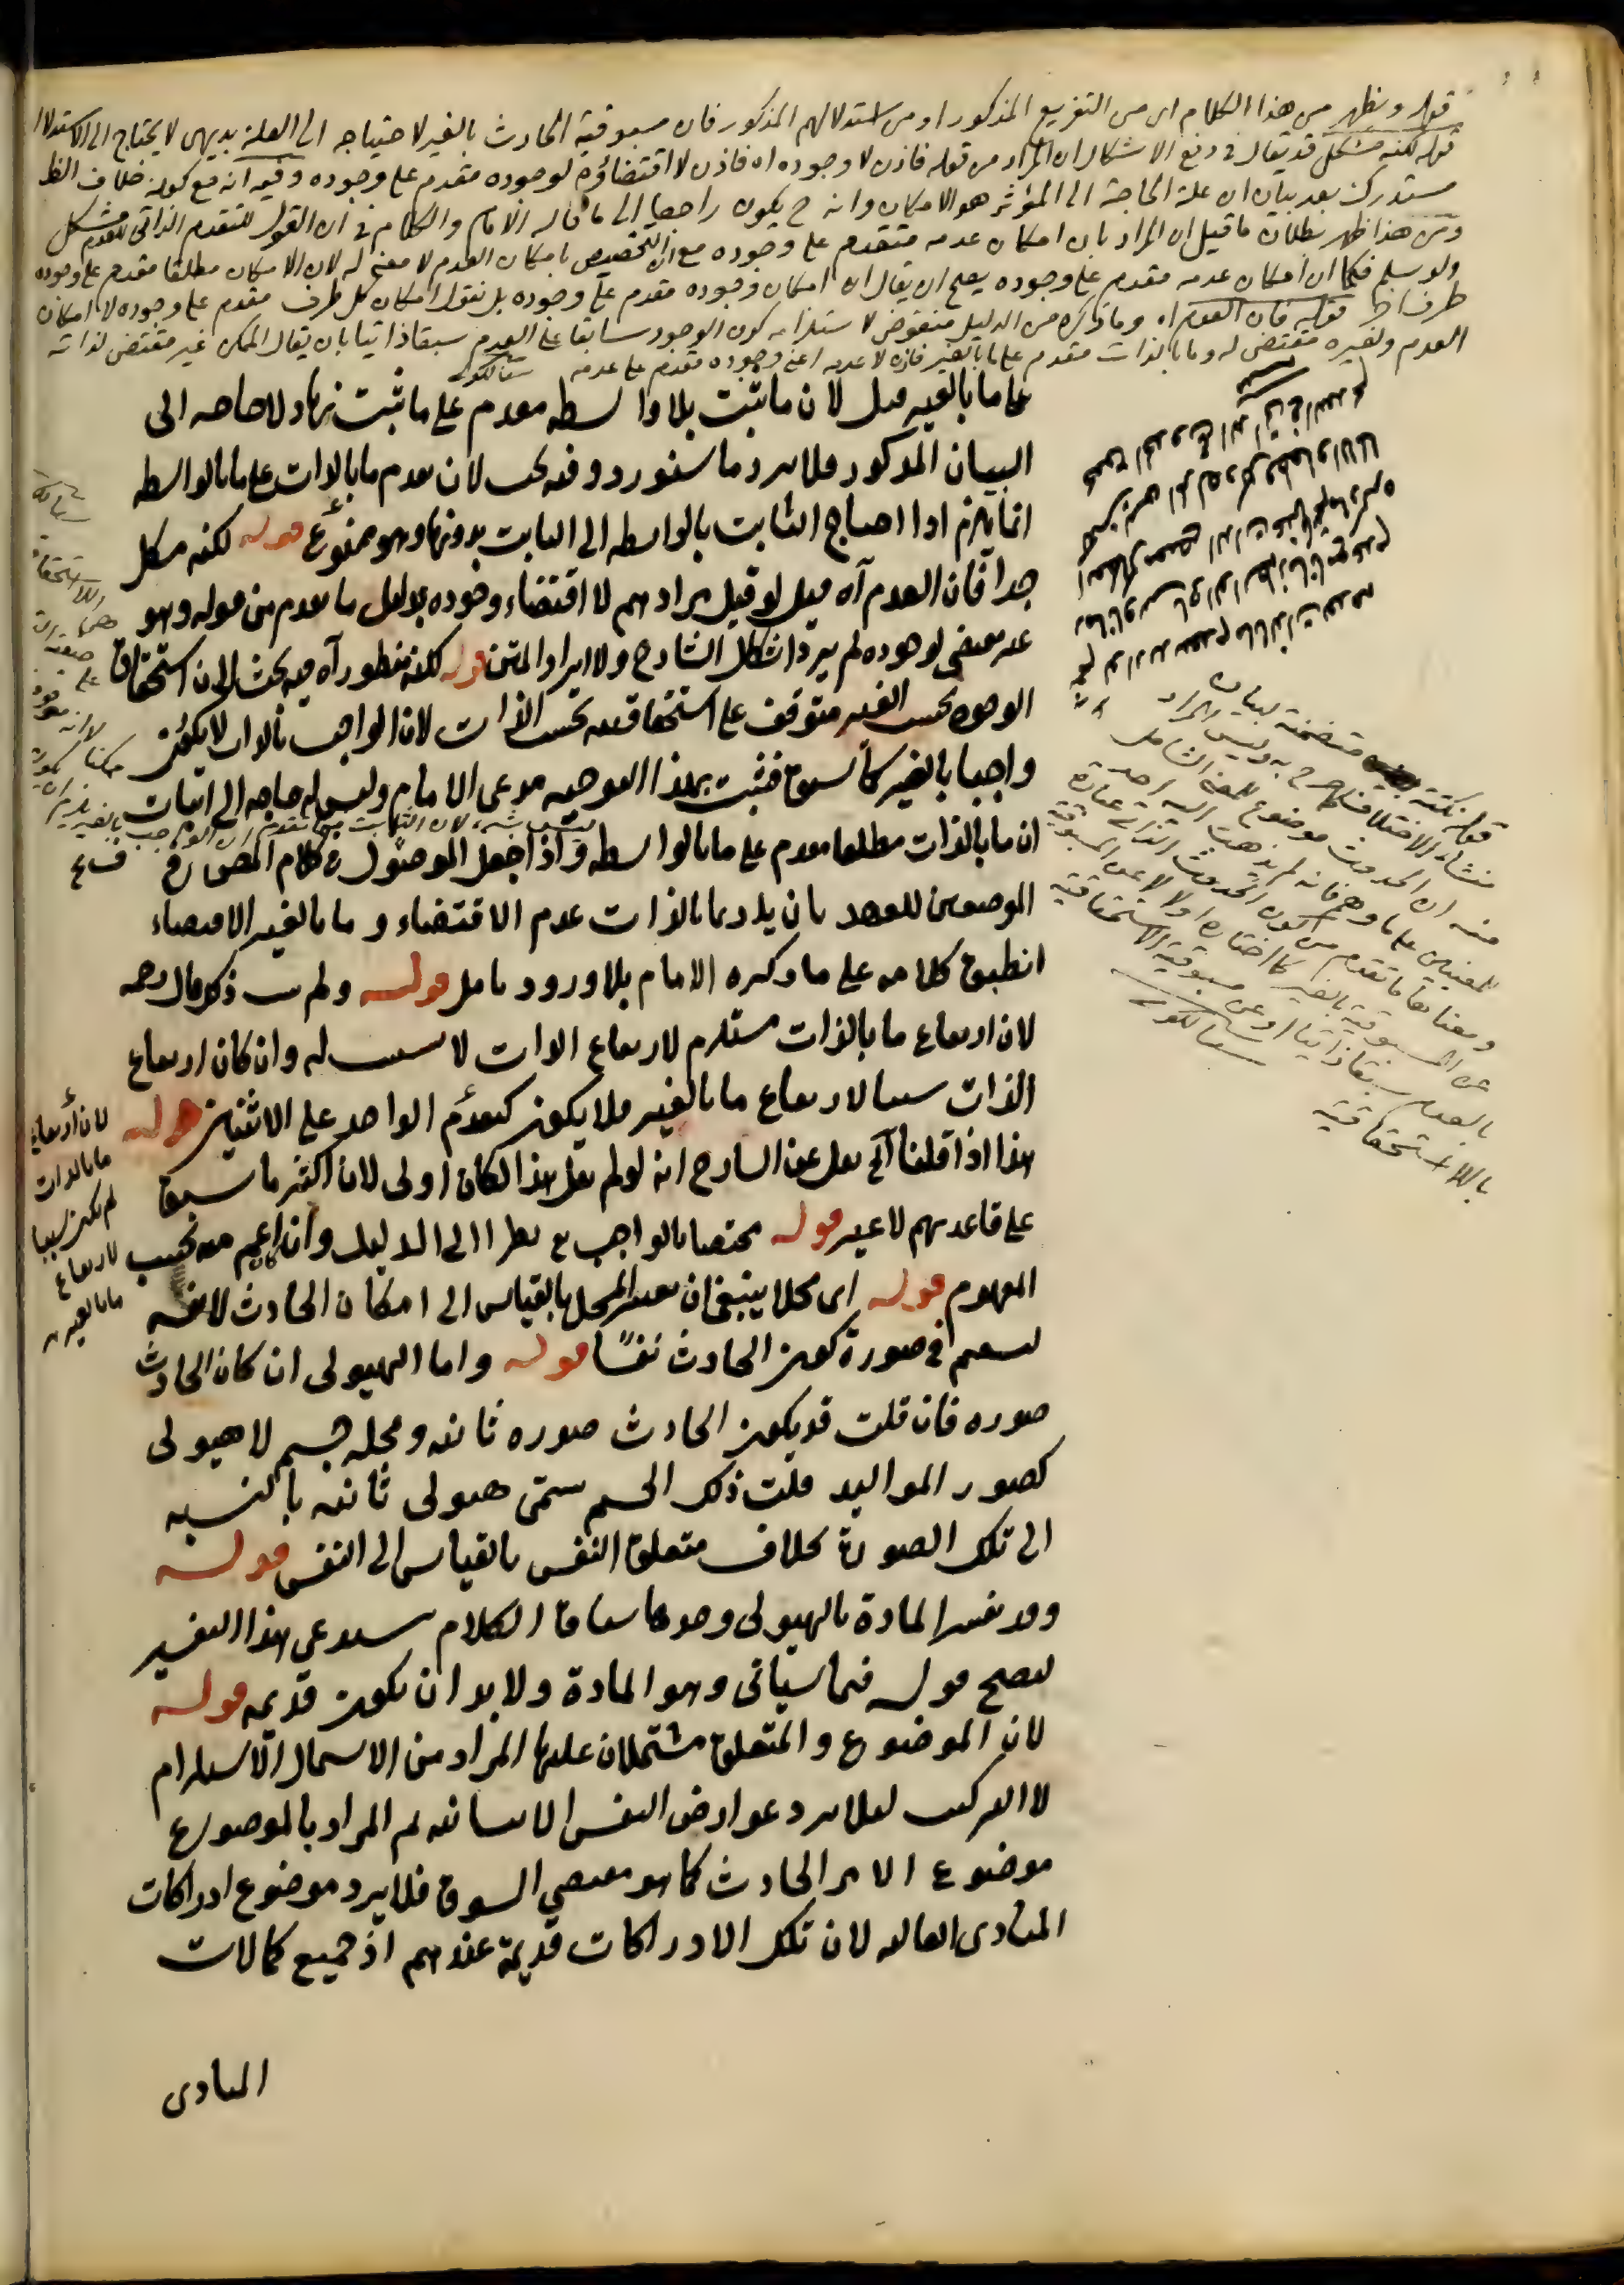 قوله ويظهر من هذا الكلام اى من التفريع المذكور او من استدلالهم المذكور فان مسبوقية الحادث بالغير لاحتياجه الى العلة بديهى لا يحتاج الى الاستدلال
قوله لكنه مشكل قد يقال فى دفع الاشكال ان المراد من قوله فاذن لا وجوده اه فاذن لا اقتضاؤه لوجوده متقدم على وجوده وفيه انه مع كونه خلاف الظ
مستدرك بعد بيان ان علة الحاجة الى المؤثر هو الامكان وانه ح يكون راجعا الى ما قاله الامام والكلام فى ان القول للتقدم الذاتى للعدم مشكل
ومن هذا ظهر بطلان ما قيل ان المراد بان امكان عدمه متقدم على وجوده مع ان التخصيص بامكان العدم لا معنى له لان الامكان مطلقا مقدم على وجوده
ولو سلم فكما ان امكان عدمه مقدم على وجوده يصح ان يقال ان امكان وجوده مقدم على وجوده بل نقول امكان كل طرف مقدم على وجوده لا امكان
طرف قوله فان العدم اه وما ذكره من الدليل منقوض لاستلزامه كون الوجود سابقا على العدم سبقا ذاتيا بان يقال الممكن غير مقتض لذاته
العدم ولغيره مقتض له وما بالذات مقدم على ما بالغير فاذن لا عدمه اعنى وجوده مقدم على عدمه سيالكوتى
على ما بالغير قيل لان ما ثبت بلا واسطه مقدم على ما ثبت بها ولا حاجه الى
البيان المذكور فلا يرد ما سنورد وفيه بحث لان تقدم ما بالذات على ما بالواسطه
انما يلزم اذا احتاج الثابت بالواسطه الى الثابت بدونها وهو ممنوع قوله لكنه مشكل
جدا فان العدم آه قيل لو قيل مرادهم لا اقتضاء وجوده بدليل ما تقدم من قوله وهو
غير مقتضى لوجوده لم يرد اشكال الشارح ولا ايراد المتن قوله لكنه منظور آه فيه بحث لان استحقاق
الوجود بحسب الغير متوقف على استحقاقيه بحسب الذات لان الواجب بالذات لا يكون
واجبا بالغير كما سبق فثبت بهذا التوجيه مدعى الامام وليس له حاجه الى اثبات
ان ما بالذات مطلقا مقدم على ما بالواسطه واذا جعل الموصول فى كلام المص فى
الموضعين للعهد بان يراد بما بالذات عدم الاقتضاء وما بالغير الاقتضاء
انطبق كلامه على ما ذكره الامام بلا ورود تامل قوله ولم يثبت ذكر قال رحمه
لان ارتفاع ما بالذات مستلزم لارتفاع الذات لا سبب له وان كان ارتفاع
الذات سببا لارتفاع ما بالغير فلا يكون كتقدم الواحد على الاثنين قوله
هذا اذا قلنا آه نقل عن الشارح انه لو لم يقل هذا لكان اولى لان اكثر ما سبق
على قاعدتهم لا غير قوله مختصا بالواجب نظرا الى الدليل وان كان اعم منه بحسب
المفهوم قوله اى محلا ينبغى ان يعتبر المحل بالقياس الى امكان الحادث لا نفسه
ليستقيم فى صورة كون الحادث نفسًا قوله واما الهيولى ان كان الحادث
صوره فان قلت قد يكون الحادث صوره ثانيه ومحله جسم لا هيولى
كصور المواليد قلت ذلك الجسم يسمى هيولى ثانيه بالنسبه
الى تلك الصورة بخلاف متعلق النفس بالقياس الى النفس قوله
وقد تفسر المادة بالهيولى وحدها سياق الكلام يستدعى هذا التفسير
ليصح قوله فيما سياتى وهو المادة ولا بد ان تكون قديمه قوله
لان الموضوع والمتعلق مشتملان عليها المراد من الاشتمال الاستلزام
لا التركيب لئلا يرد عوارض النفس الانسانيه ثم المراد بالموضوع
موضوع الامر الحادث كما هو مقتضى السوق فلا يرد موضوع ادراكات
المبادى العاليه لان تلك الادراكات قديمة عندهم اذ جميع كمالات
المبادى
قوله نكتة متضمنة لبيان
منشاء الاختلاف به وليس المراد
منه ان الحدوث موضوع للمعنى الشامل
للمعنيين على ما وهم فانه لم يذهب اليه احد
ومعنا ما تقدم من كون الحدوث الذاتى عبارة
عن المسبوقية بالغير كما اختاره اولا او عن المسبوقية
بالعدم سبقا ذاتيا او عن مسبوقية الاستحقاقية
باللااستحقاقية سيالكوتى
لان ارتفاع
ما بالذات
لم يكن سببا
لارتفاع
ما بالغير